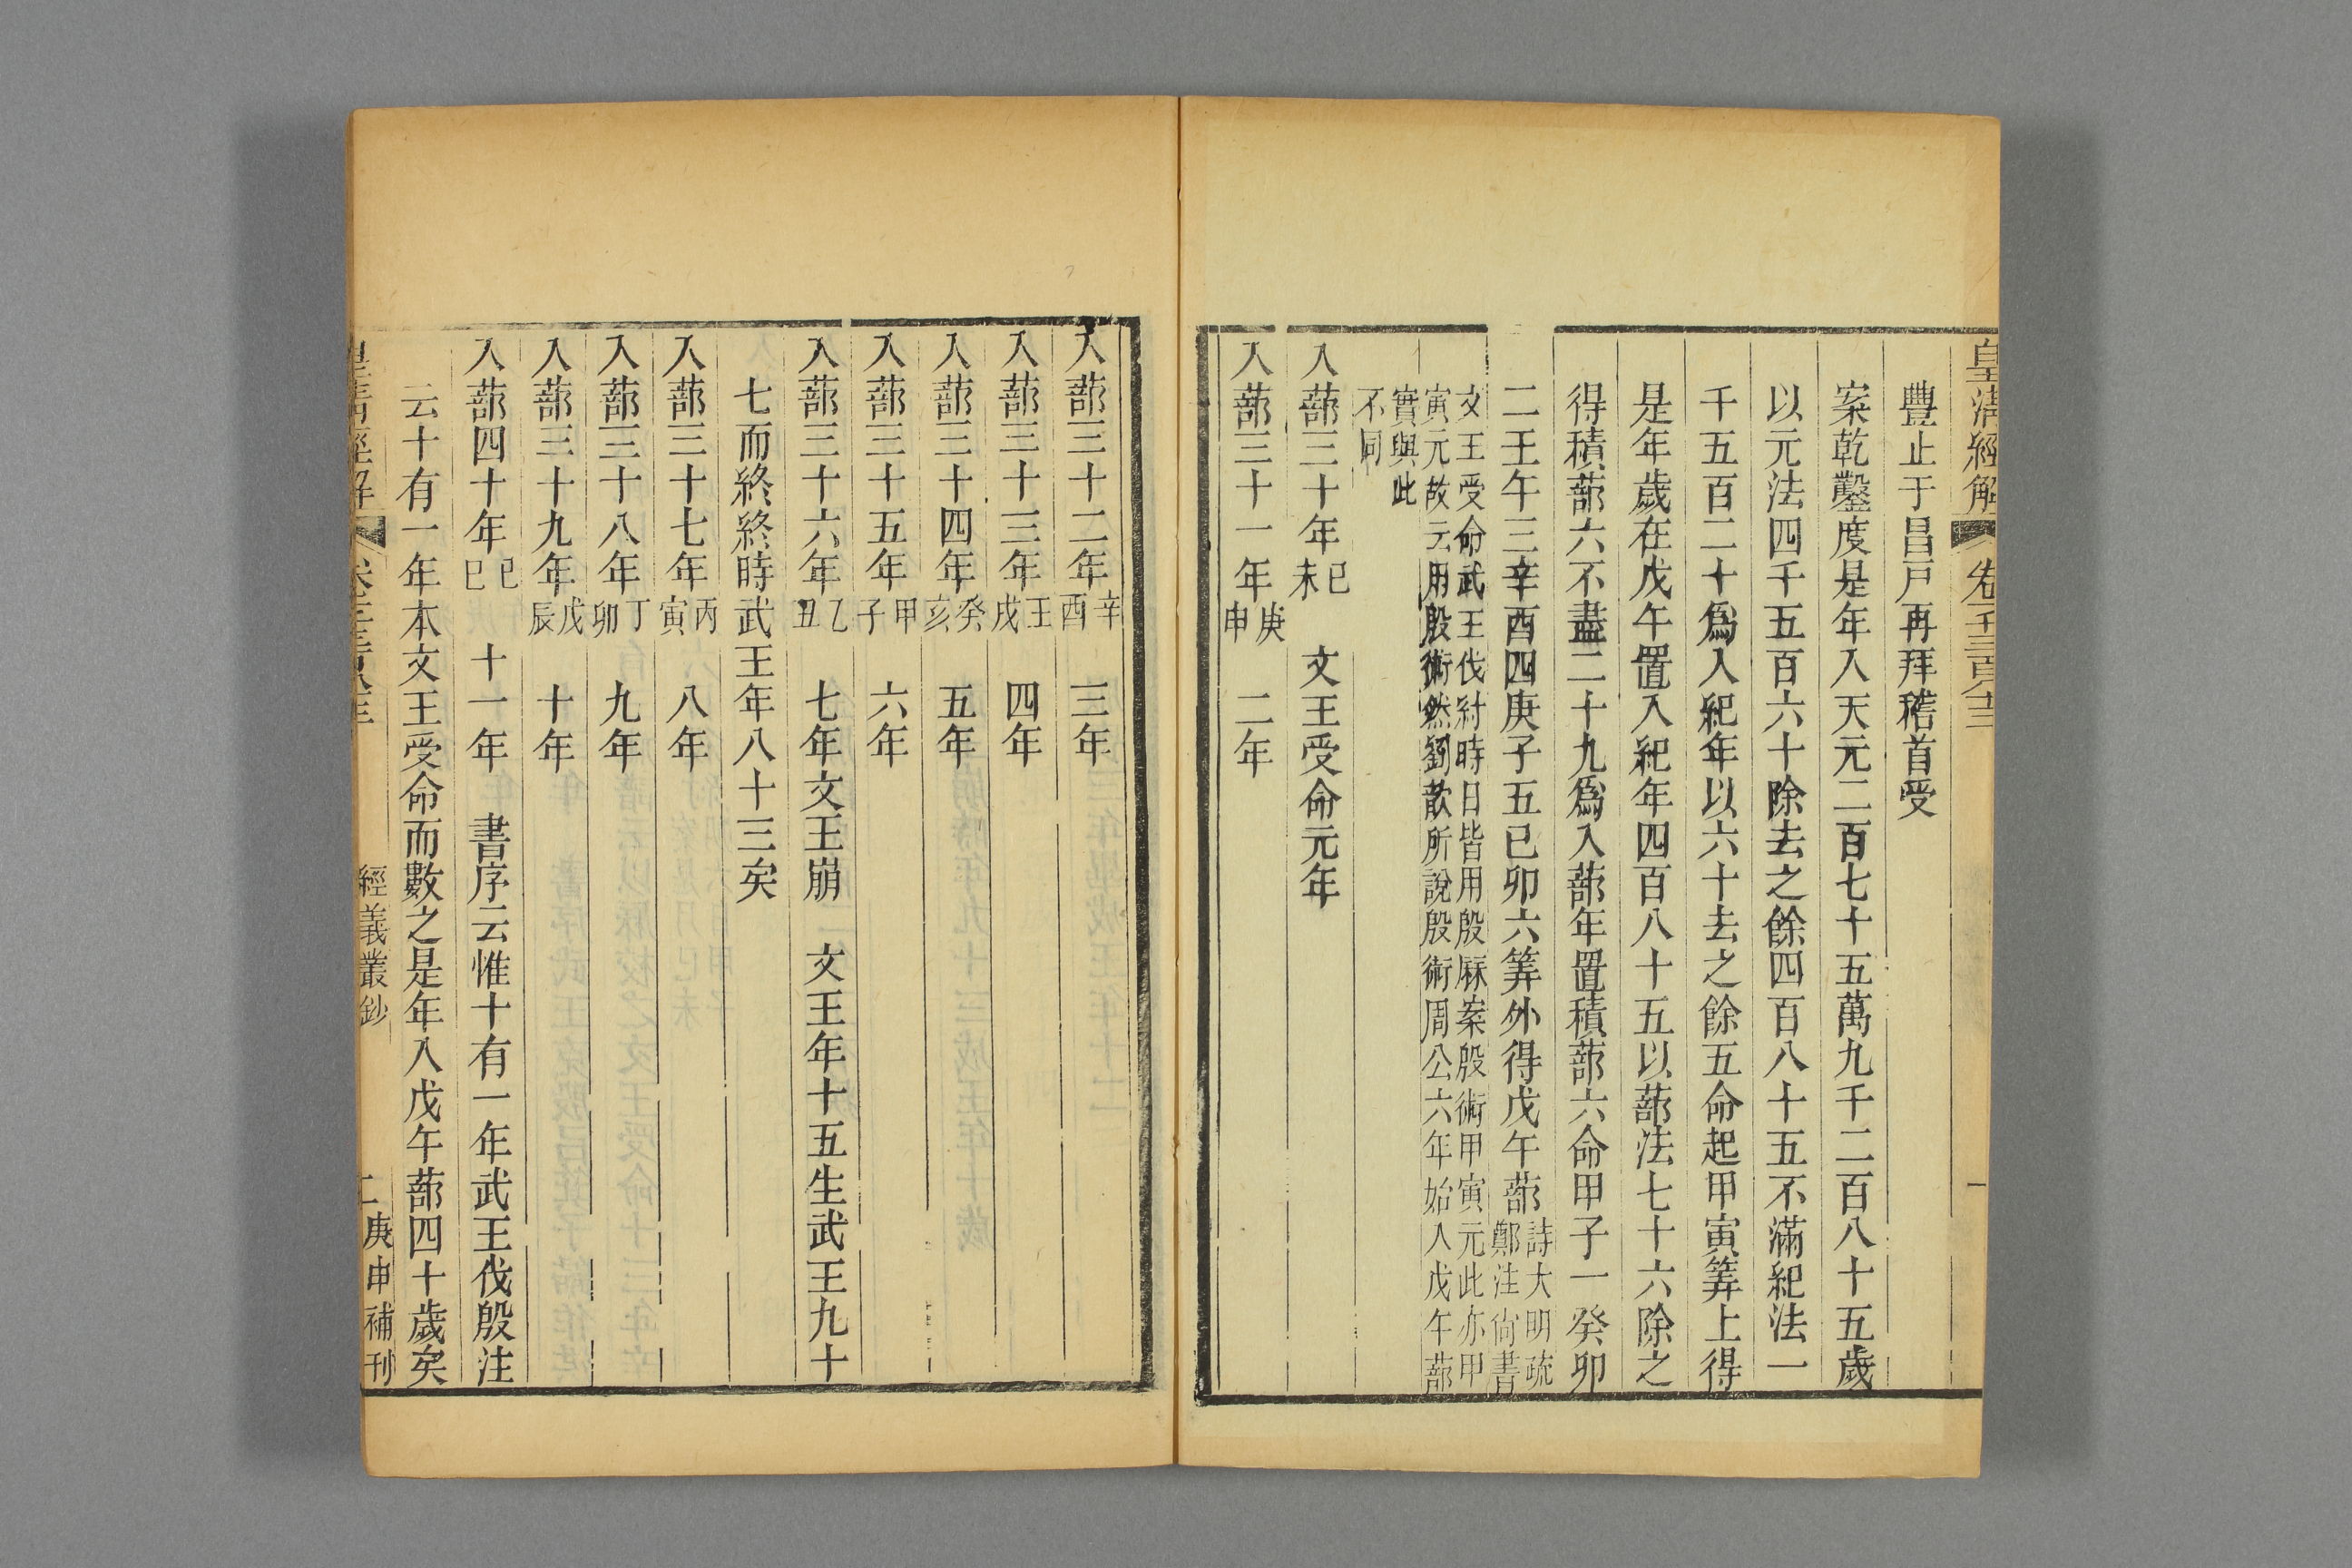 皇清經解 卷千三百八十三 一
豐止于昌戶再拜稽首受
案乾鑿度是年入天元二百七十五萬九千二百八十五歲
以元法四千五百六十除去之餘四百八十五不滿紀法一
千五百二十爲入紀年以六十去之餘五命起甲寅筭上得
是年歲在戊午置入紀年四百八十五以蔀法七十六除之
得積蔀六不盡二十九爲入蔀年置積蔀六命甲子一癸卯
二壬午三辛酉四庚子五己卯六筭外得戊午蔀詩大明疏鄭注尙書
文王受命武王伐紂時日皆用殷厤案殷術甲寅元此亦甲
寅元故云用殷術然劉歆所說殷術周公六年始入戊午蔀
實與此
不同
入蔀三十年己未 文王受命元年
入蔀三十一年庚申 二年
入蔀三十二年辛酉 三年
入蔀三十三年壬戌 四年
入蔀三十四年癸亥 五年
入蔀三十五年甲子 六年
入蔀三十六年乙丑 七年文王崩 文王年十五生武王九十
七而終終時武王年八十三矣
入蔀三十七年丙寅 八年
入蔀三十八年丁卯 九年
入蔀三十九年戊辰 十年
入蔀四十年己巳 十一年 書序云惟十有一年武王伐殷注
云十有一年本文王受命而數之是年入戊午蔀四十歲矣
皇清經解 經義叢鈔 二 庚申補刊